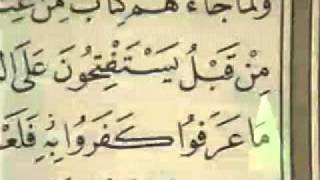 ولما جاءهم كتاب من عند
مِن قَبْلُ يَسْتَفْتِحُونَ عَلَى
مَا عَرَفُوا كَفَرُوا بِهِ فَلَعْ